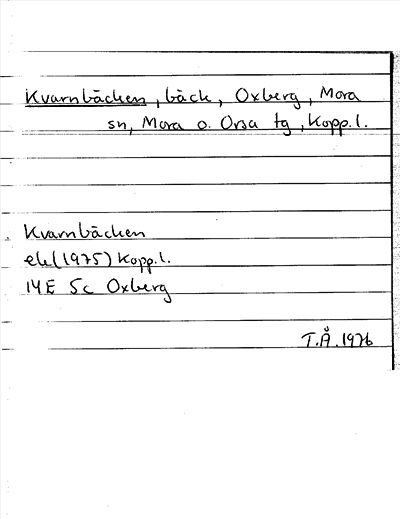 Kvarnbäcken, bäck, Oxberg, Mora
sn, Mora o. Orsa tg, Kopp.l.
Kvarnbäcken
ek(1975) Kopp.l.
14E 5c Oxberg
T.Å. 1976